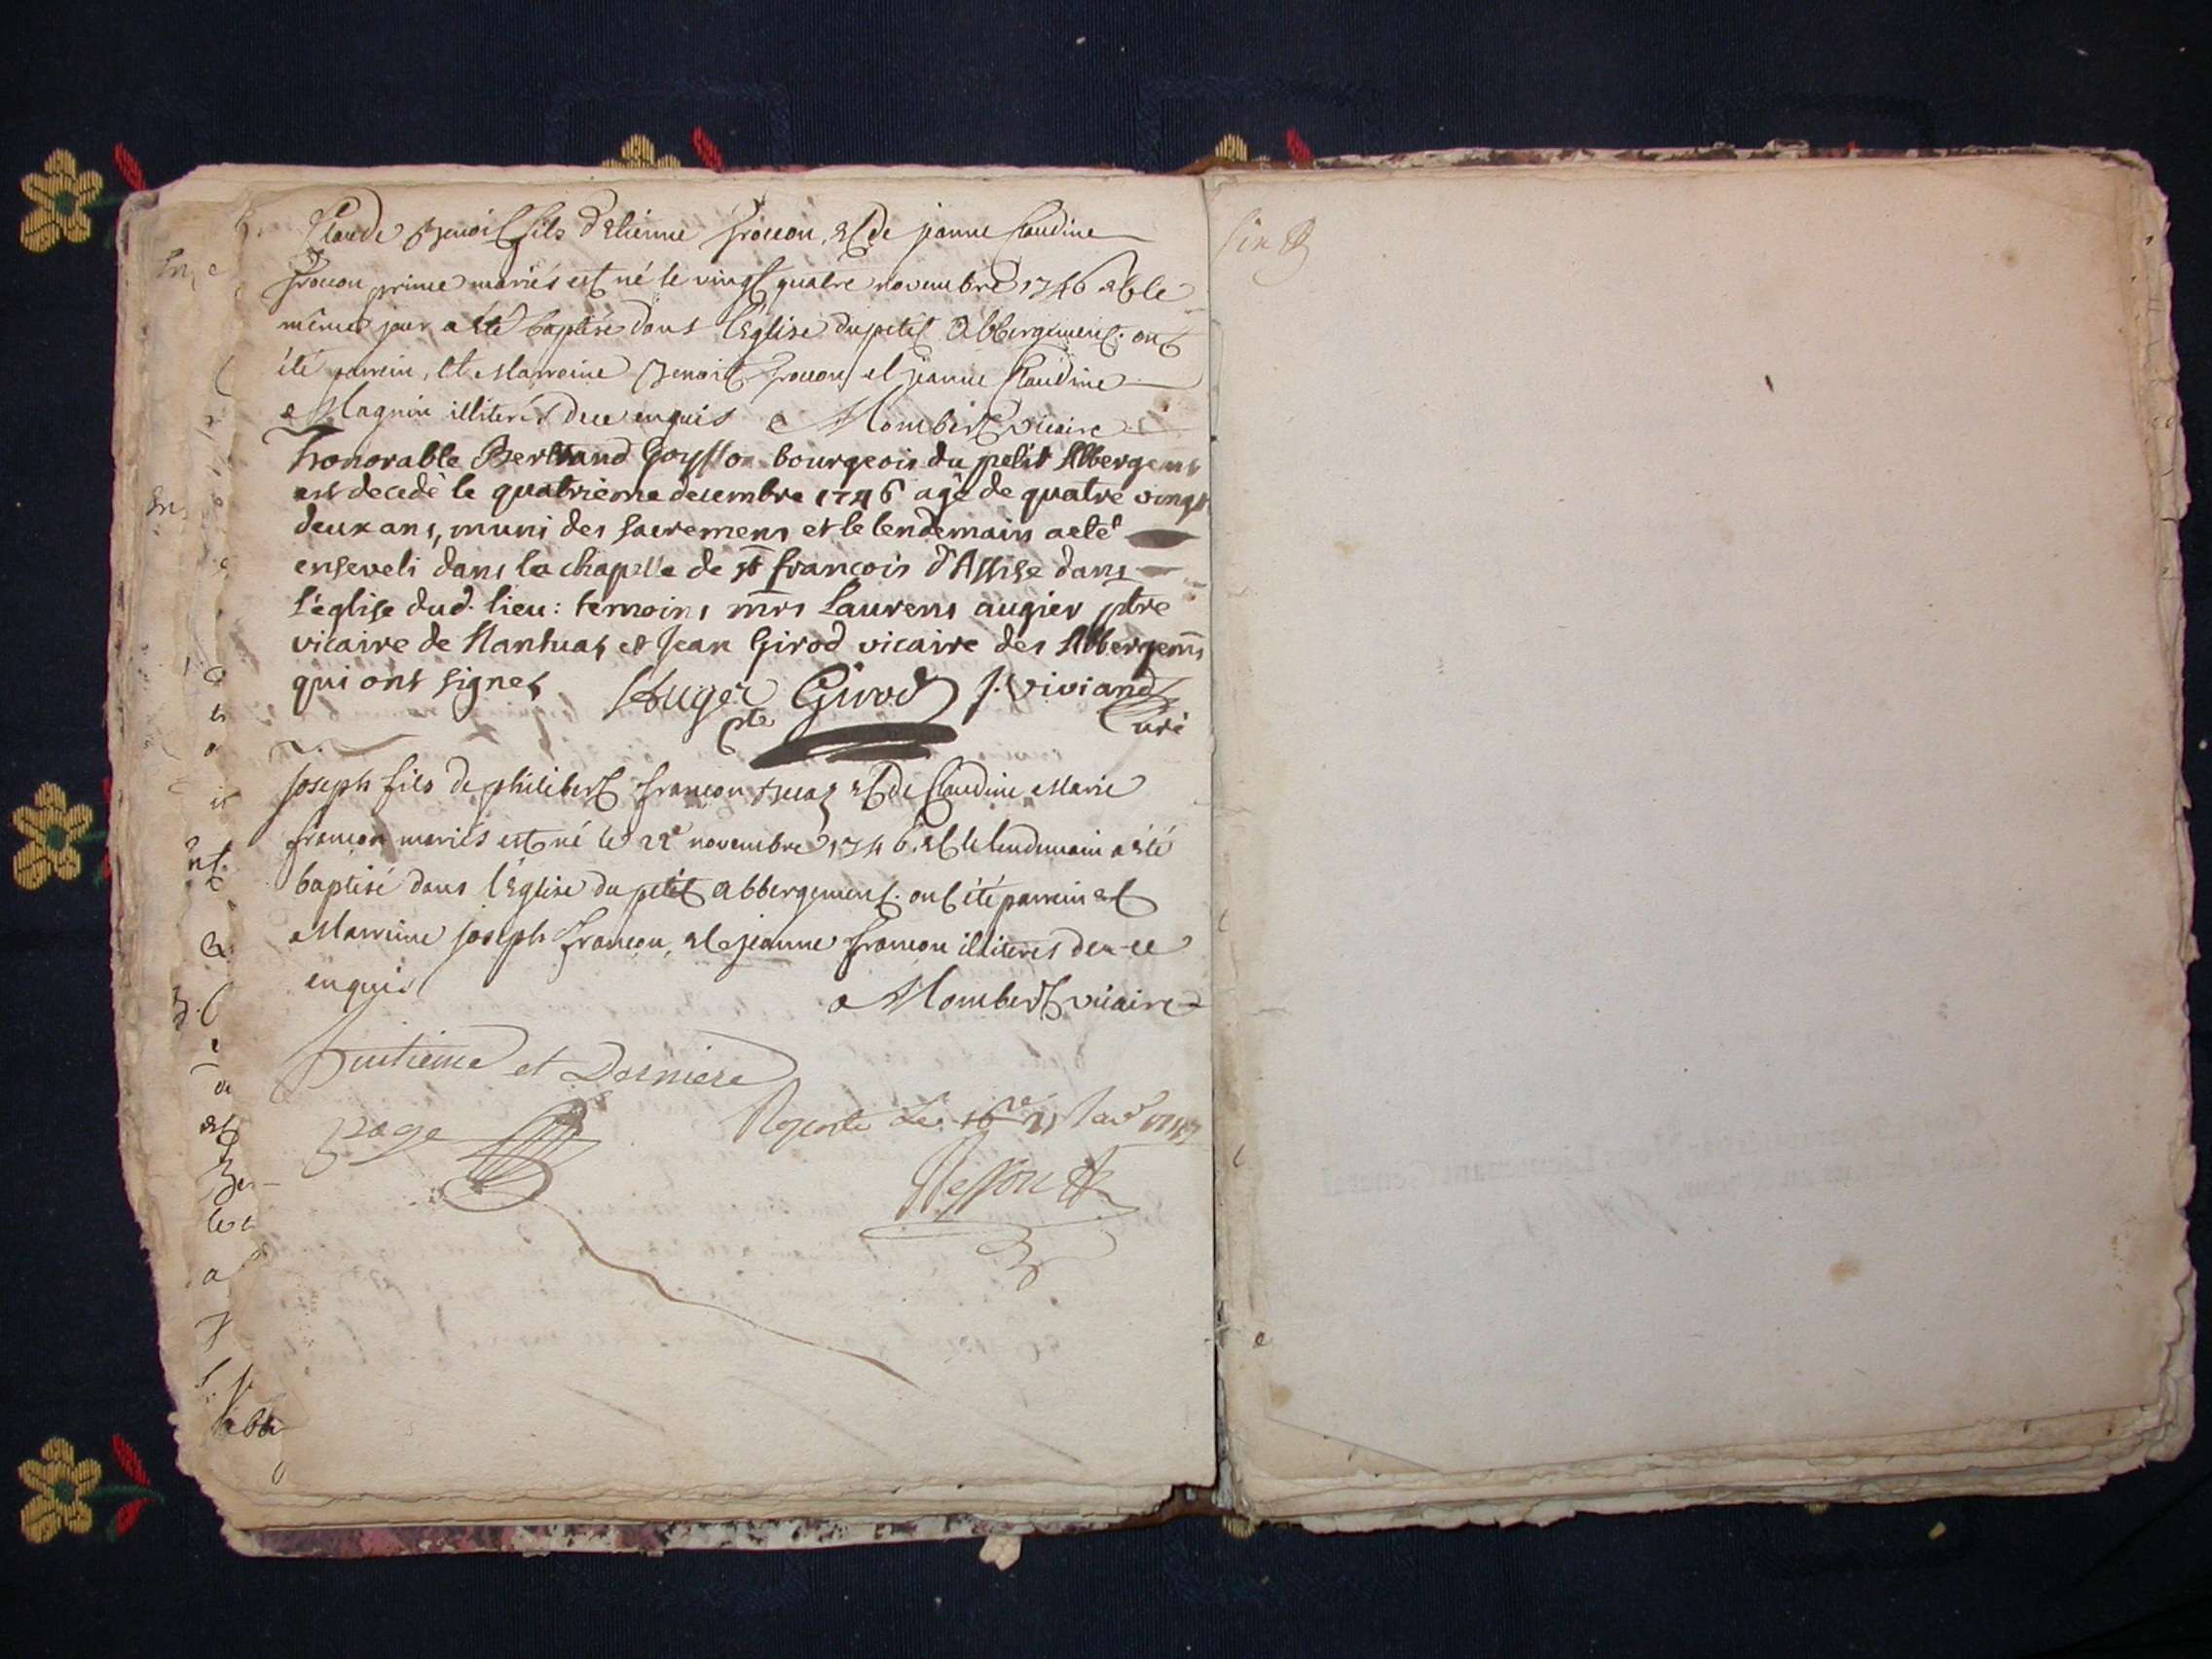 Claude Benoit fils d'Etienne françon, et de jeanne Claudine
françon prime mariés est né le vingt quatre novembre 1746 et le
même jour a été baptisé dans l'Eglise du petit Abbergement. ont
été parrein, et Marraine Benoit françon et jeanne Claudine
Magnin illiterés de ce enquis Mombert vicaire
honorable Bertrand Goyffon bourgeois du petit Abbergemt
est decedé le quatrieme decembre 1746 agé de quatre vingt
deux ans, muni des sacremens et le lendemain a eté
enseveli dans la chapelle de st francois d'Assise dans
l'église dud. lieu: temoins mrs Laurens augier ptre
vicaire de Nantuat et Jean Girod vicaire des Abbergemts
qui ont signet Auger Girod J. Viviand
ptre Curé
joseph fils de philibert françon et de Claudine Marie
françon mariés est né le 22e novembre 1746. et le lendemain a été
baptisé dans l'Eglise du petit abbergement. ont été parrein et
Marreine joseph françon, et jeanne françon illiteres de ce
enquis
Mombert vicaire
huitieme et Derniere
page